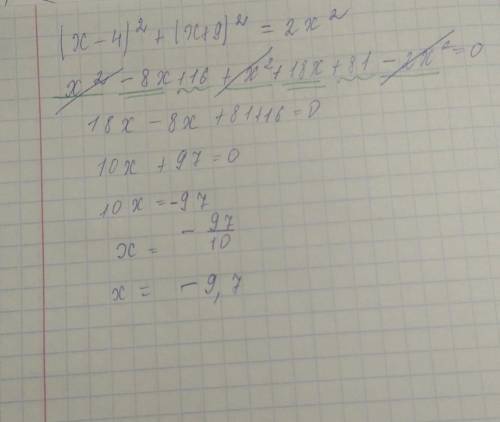 (x-4)² + (x+9)² = 2x²
x² - 8x + 16 + x² + 18x + 81 - 2x² = 0
18x - 8x + 81 + 16 = 0
10x + 97 = 0
10x = -97
x = - 97/10
x = - 9,7